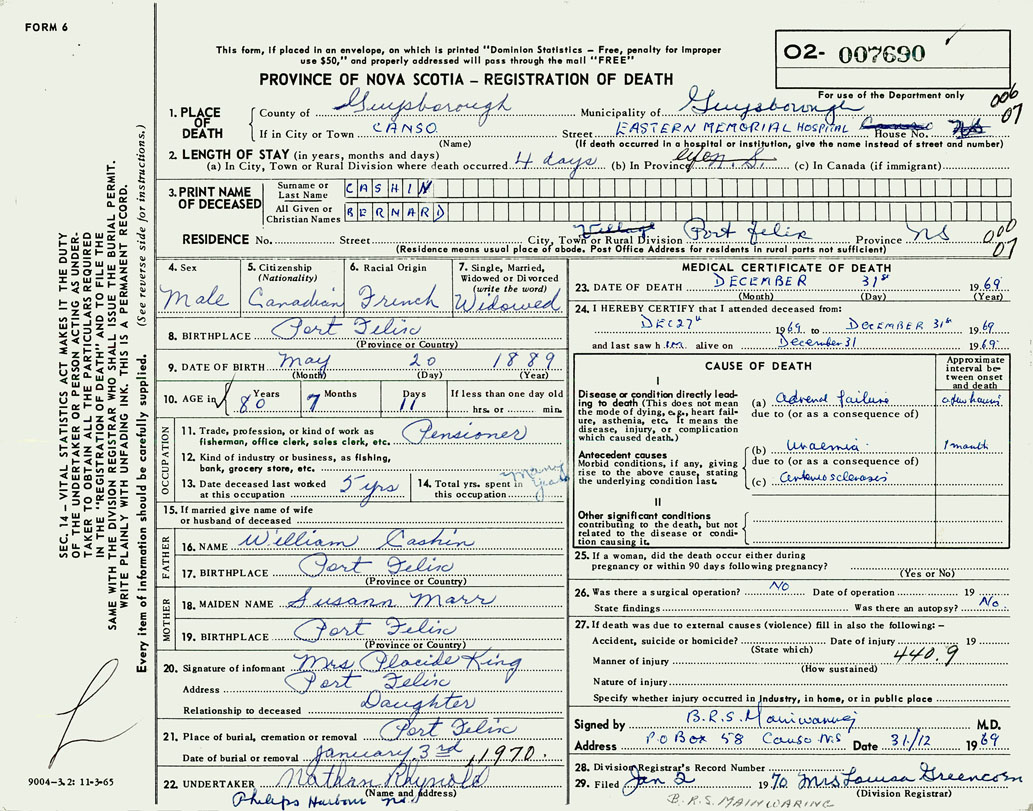 FORM 6
This form, if placed in an envelope, on which is printed "Dominion Statistics – Free, penalty for improper
use $50," and properly addressed will pass through the mail "FREE"
O2- 007690
PROVINCE OF NOVA SCOTIA – REGISTRATION OF DEATH
For use of the Department only
006
07
1. PLACE OF DEATH
County of Guysborough Municipality of Guysborough
If in City or Town CANSO Street EASTERN MEMORIAL HOSPITAL House No.
(Name) (If death occurred in a hospital or institution, give the name instead of street and number)
2. LENGTH OF STAY (in years, months and days)
(a) In City, Town or Rural Division where death occurred 4 days (b) In Province (c) In Canada (if immigrant)
3. PRINT NAME OF DECEASED
Surname or Last Name CASHIN
All Given or Christian Names BERNARD
RESIDENCE No. Street City, Town or Rural Division Village Port Felix Province NS
(Residence means usual place of abode. Post Office Address for residents in rural parts not sufficient)
000
07
4. Sex Male
5. Citizenship (Nationality) Canadian
6. Racial Origin French
7. Single, Married, Widowed or Divorced (write the word) Widowed
8. BIRTHPLACE Port Felix
(Province or Country)
9. DATE OF BIRTH May 20 1889
(Month) (Day) (Year)
10. AGE in Years 80 Months 7 Days 11 If less than one day old
hrs. or min.
OCCUPATION
11. Trade, profession, or kind of work as
fisherman, office clerk, sales clerk, etc. Pensioner
12. Kind of industry or business, as fishing,
bank, grocery store, etc.
13. Date deceased last worked
at this occupation 5 yrs
14. Total yrs. spent in
this occupation many years
15. If married give name of wife
or husband of deceased
FATHER
16. NAME William Cashin
17. BIRTHPLACE Port Felix
(Province or Country)
MOTHER
18. MAIDEN NAME Susann Marr
19. BIRTHPLACE Port Felix
(Province or Country)
20. Signature of informant Mrs Placide King
Address Port Felix
Relationship to deceased Daughter
21. Place of burial, cremation or removal Port Felix
Date of burial or removal January 3rd, 1970.
22. UNDERTAKER Nathan Rhynold
(Name and address)
Philips Harbour ns.
MEDICAL CERTIFICATE OF DEATH
23. DATE OF DEATH DECEMBER 31st 1969
(Month) (Day) (Year)
24. I HEREBY CERTIFY that I attended deceased from:
DEC 27th 1969 to DECEMBER 31st 1969
and last saw h im alive on December 31 1969
CAUSE OF DEATH
Approximate interval between onset and death
I
Disease or condition directly leading
to death (This does not mean
the mode of dying, e.g., heart failure,
asthenia, etc. It means the
disease, injury, or complication
which caused death.)
(a) Adrenal failure a few hours
due to (or as a consequence of)
Antecedent causes
Morbid conditions, if any, giving
rise to the above cause, stating
the underlying condition last.
(b) Uraemia 1 month
due to (or as a consequence of)
(c) arteriosclerosis
II
Other significant conditions
contributing to the death, but not
related to the disease or condition
causing it.
25. If a woman, did the death occur either during
pregnancy or within 90 days following pregnancy?
(Yes or No)
26. Was there a surgical operation? NO Date of operation 19
State findings Was there an autopsy? No.
27. If death was due to external causes (violence) fill in also the following: –
Accident, suicide or homicide? Date of injury 19
(State which) 440.9
Manner of injury
(How sustained)
Nature of injury
Specify whether injury occurred in Industry, in home, or in public place
Signed by B.R.S. Mainwaring M.D.
Address P O Box 58 Canso NS Date 31/12 1969
28. Division Registrar's Record Number
29. Filed Jan 2 1970 Mrs Louisa Greencorn
(Division Registrar)
B.R.S. MAINWARING
SEC. 14 – VITAL STATISTICS ACT MAKES IT THE DUTY
OF THE UNDERTAKER OR PERSON ACTING AS UNDERTAKER
TO OBTAIN ALL THE PARTICULARS REQUIRED
IN THE "REGISTRATION OF DEATH" AND TO FILE THE
SAME WITH THE DIVISION REGISTRAR WHO SHALL ISSUE THE BURIAL PERMIT.
WRITE PLAINLY WITH UNFADING INK. THIS IS A PERMANENT RECORD.
Every item of information should be carefully supplied. (See reverse side for instructions.)
9004-3.2: 11-3-65